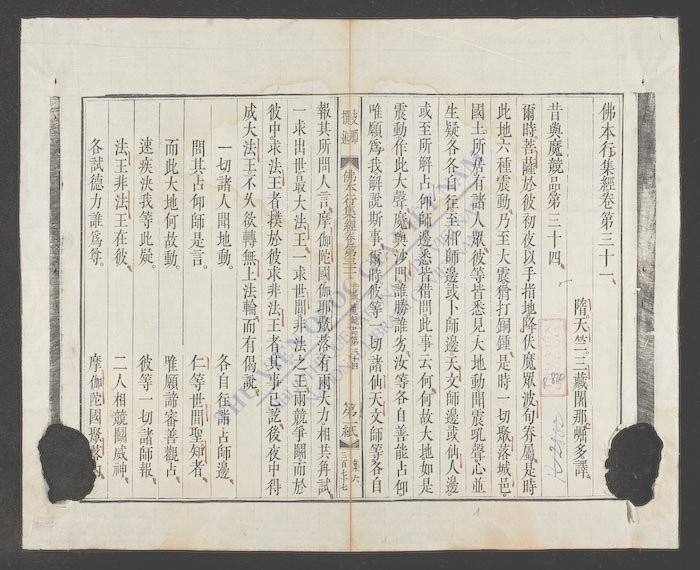 佛本行集經卷第三十一
隋天竺三藏闍那崛多譯
昔與魔競品第三十四
爾時菩薩於彼初夜以手指地降伏魔眾波旬眷屬是時
此地六種震動乃至大震猶打銅鍾是時一切聚落城邑
國土所居有諸人眾彼等皆悉見大地動聞震吼聲心並
生疑各各自往至相師邊或卜師邊天文師邊或仙人邊
或至所解占仰師邊悉皆借問此事云何何故大地如是
震動作此大聲魔與沙門誰勝誰劣汝等各自善能占仰
唯願為我解說斯事爾時彼等一切諸仙天文師等各自
佛本行集經卷第三十一 第一紙
報其所問人言摩伽陀國伽耶聚落有兩大力相共角試
一求出世最大法王一求世間非法之王兩競爭鬭而於
彼中求法王者撲於彼求非法王者其事已訖後夜中得
成大法王不久欲轉無上法輪而有偈說
一切諸人聞地動 各自往詣占師邊
問其占仰師是言 仁等世間聖知者
而此大地何故動 唯願諦審善觀占
速疾決我等此疑 彼等一切諸師報
法王非法王在彼 二人相競鬭威神
各試德力誰為尊 摩伽陀國聚落內